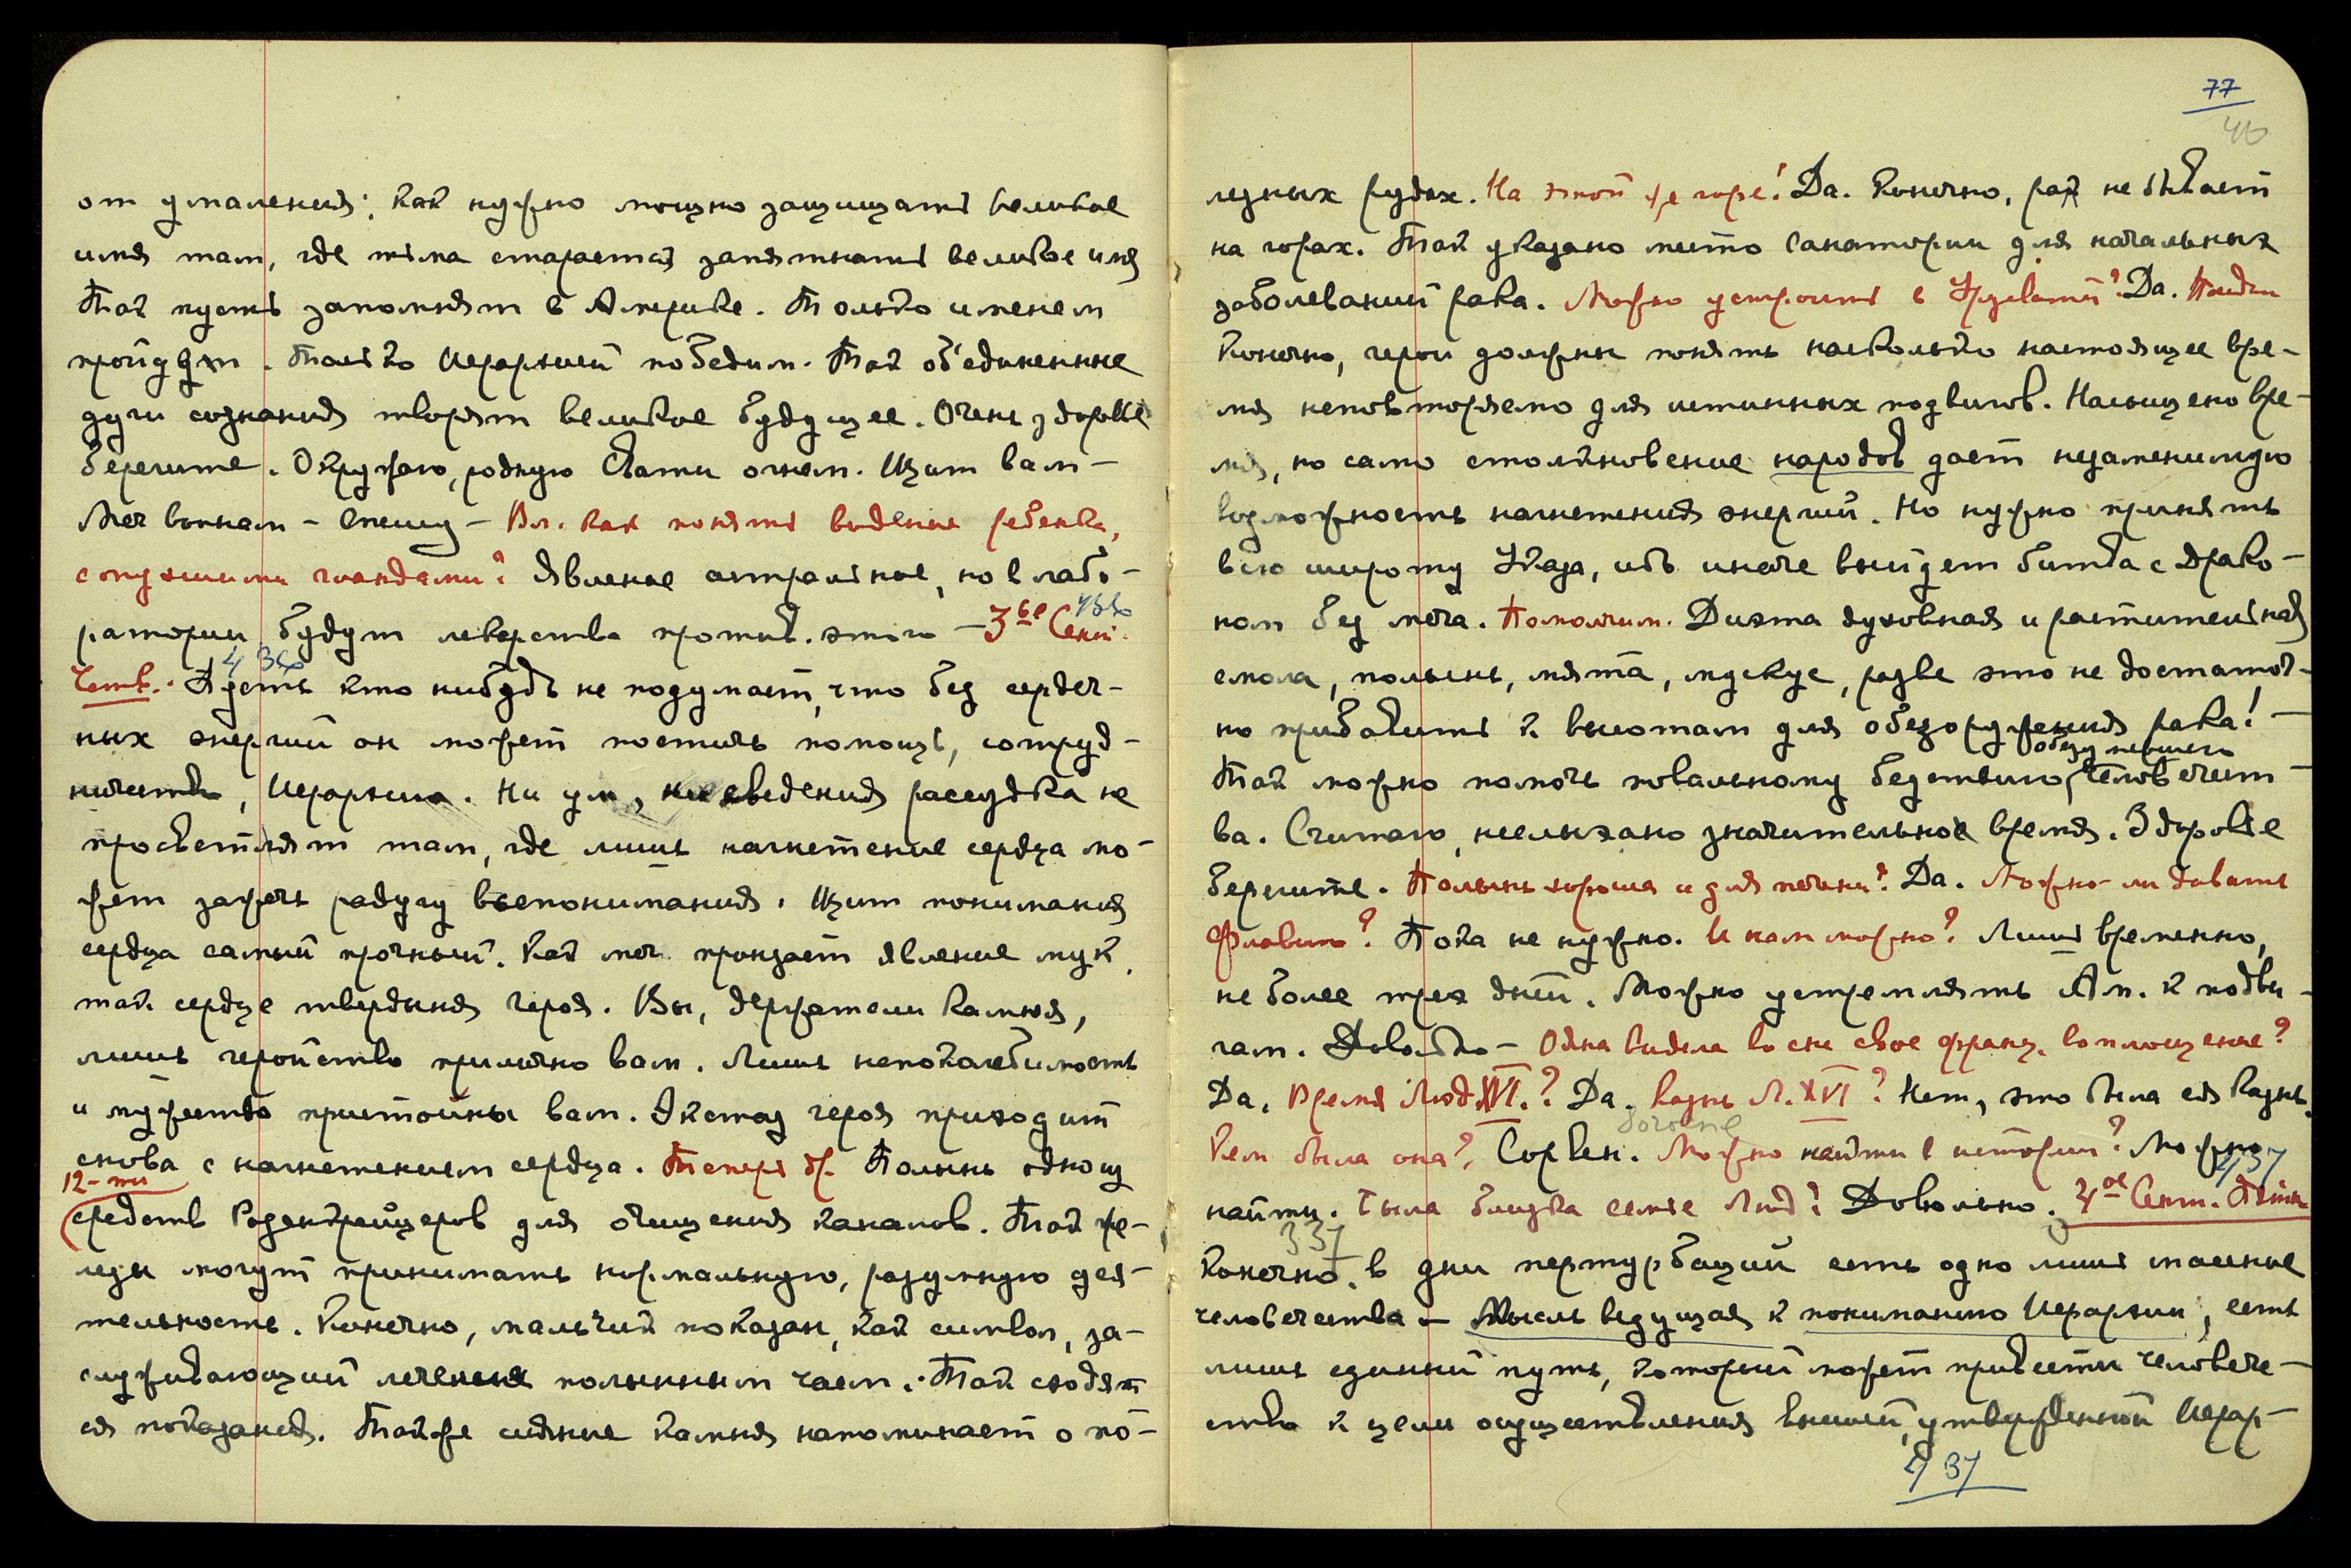 от умаления; как нужно мощно защищать великое
имя там, где тьма старается запятнать великое имя
Так пусть запомнят в Америке. Только именем
пройдут. Только Иерархией победим. Так об'единенные
дуги сознания творят великое будущее. Очень здоровье
берегите. Окружаю, родную Свати огнем. Щит вам –
Меч воинам – спешу – Вл. как понять видение ребенка,
с опухшими гландами? Явление астральное, но в лабо-
ратории будут лекарства против этого – 3ье Сент.
Четв. Пусть кто нибудь не подумает, что без сердеч-
436
ных энергий он может постичь помощь, сотруд-
ничество, Иерархию. Ни ум, ни сведения рассудка не
просветлят там, где лишь нагнетение сердца мо-
жет зажечь радугу всепонимания. Щит понимания
сердца самый прочный. Как меч пронзает явление мук,
так сердце твердыня героя. Вы, держатели камня,
лишь геройство прилично вам. Лишь непоколебимость
и мужество пристойны вам. Экстаз героя приходит
снова с нагнетением сердца. Теперь др. Полынь одно из
12-ти
средств Розенкрейцеров для очищения каналов. Так же-
лезы могут принимать нормальную, разумную дея-
тельность. Конечно, мальчик показан, как символ, за-
служивающий лечения полынным чаем. Так сходят
ся показания. Также сияние камня напоминает о по-
77
46
лезных рудах. На этой же горе? Да. Конечно, рак не бывает
на горах. Так указано место санатории для начальных
заболеваний рака. Можно устроить в Урусвати? Да.
Конечно, герои должны понять насколько настоящее вре-
мя неповторяемо для истинных подвигов. Насыщено вре-
мя, но само столкновение народов дает незаменимую
возможность нагнетения энергий. Но нужно принять
всю широту Указа, ибо иначе выйдет битва с драко-
ном без меча. Помолчим. Диэта духовная и растительная
смола, полынь, мята, мускус, разве это не достаточ-
но прибавить к высотам для обезоружения рака! –
Так можно помочь повальному бедствию человечест-
ва. Считаю, неслыхано значительное время. Здоровье
берегите. Полынь хороша и для печени? Да. Можно-ли давать
Флавию? Пока не нужно. И нам можно? Лишь временно,
не более трех дней. Можно устремлять Ам. к подви-
гам. Довольно – Одна видела во сне свое франц. воплощение?
Да. Время Люд. XVI.? Да. Казнь Л. XVI? Нет, это была ея казнь.
Кем была она? Сорвен. Можно найти в истории? Можно
найти. Была близка семье Люд? Довольно. 4ое Сент. Пятн.
437
337
Конечно, в дни пертурбаций есть одно лишь спасение
человечества – Мысль ведущая к пониманию Иерархии, есть
лишь единый путь, который может привести человече-
ство к цели осуществления высшей, утвержденной Иерар-
437